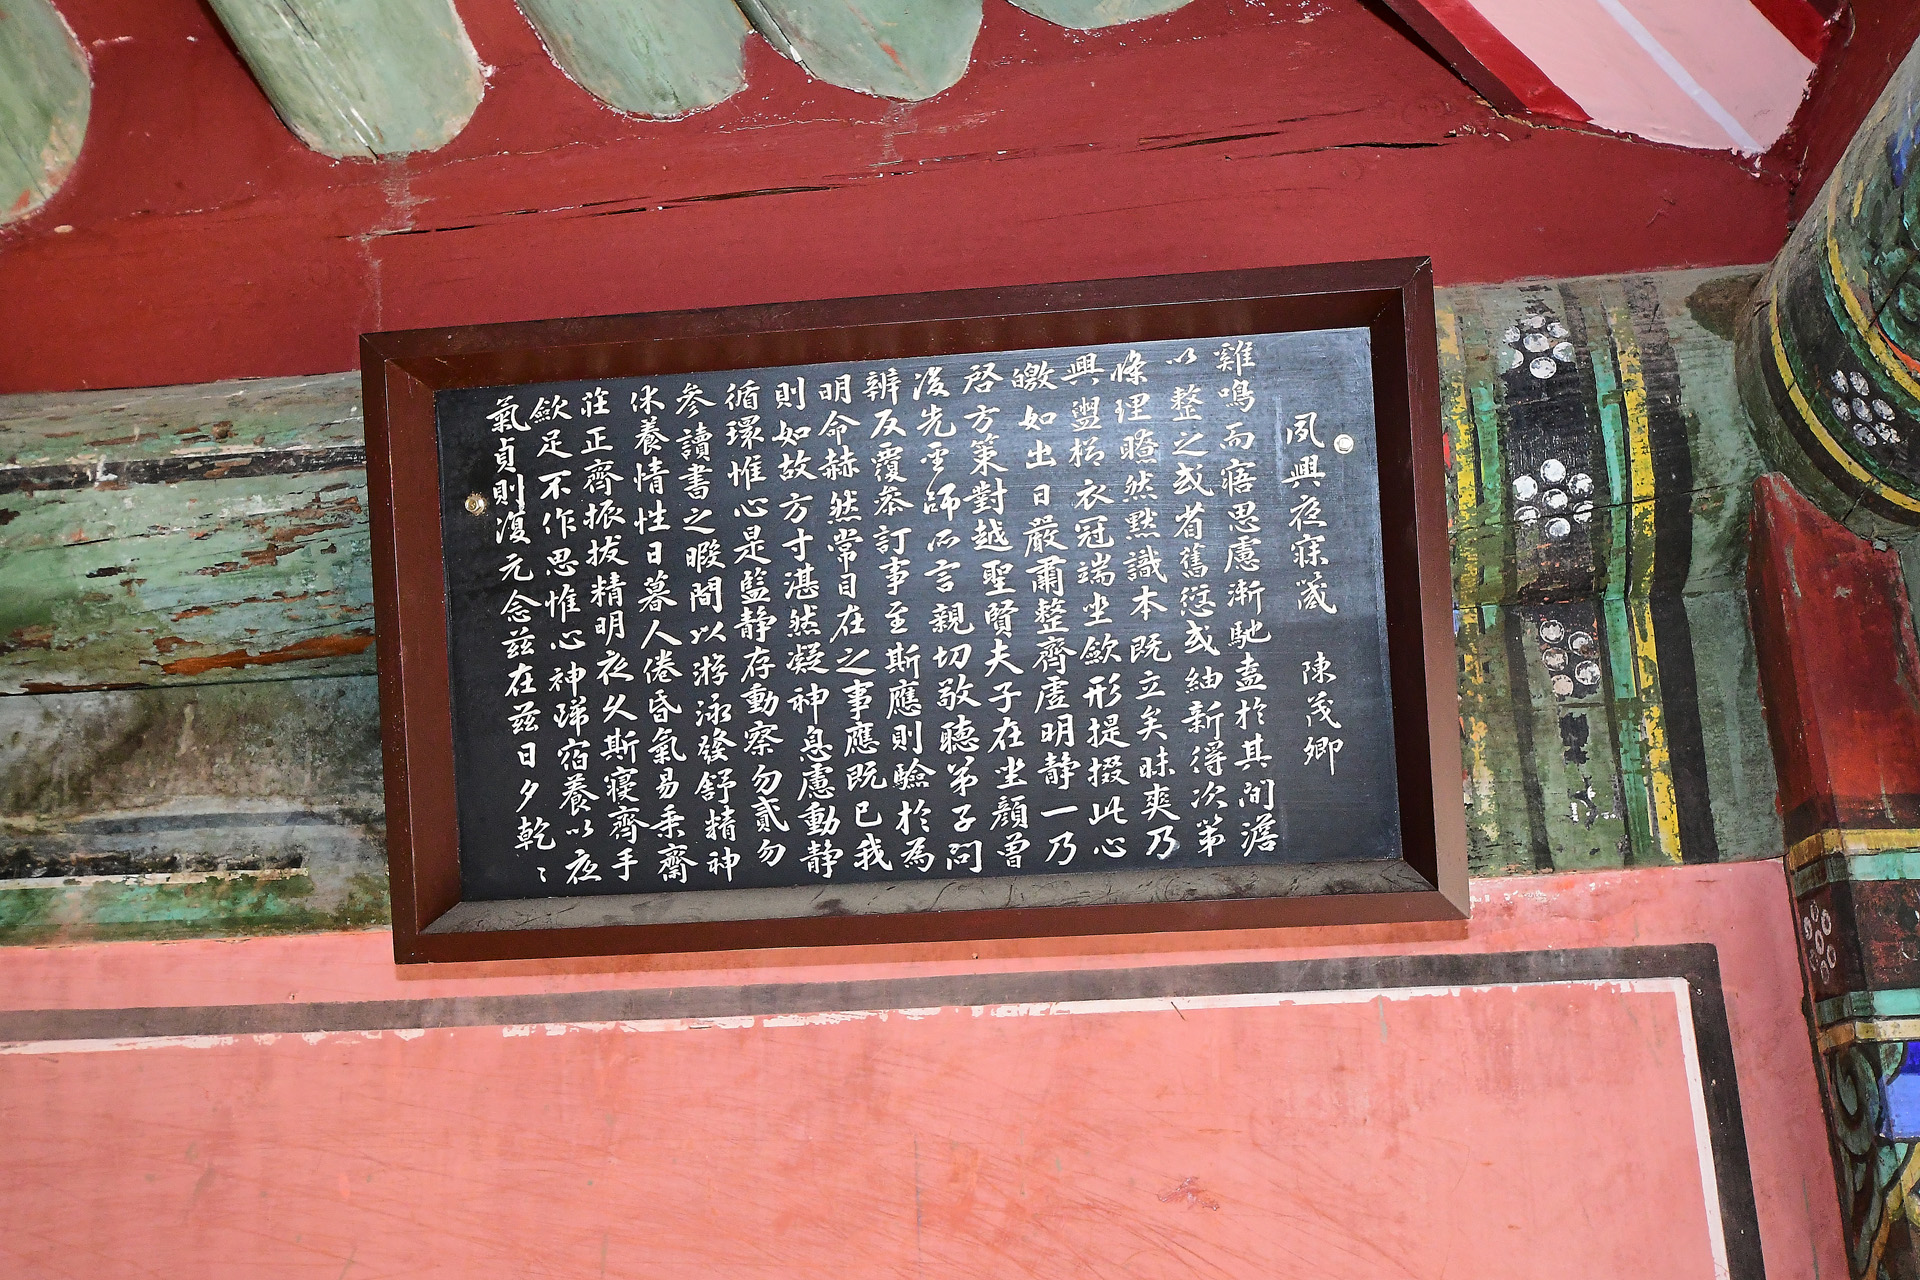 夙興夜寐箴 陳茂卿
雞鳴而寤思慮漸馳盍於其間澹
以整之或省舊愆或紬新得次第
條理瞭然默識本既立矣昧爽乃
興盥櫛衣冠端坐斂形提掇此心
皦如出日嚴肅整齊虛明静一乃
啓方策對越聖賢夫子在坐顔曾
後先聖師所言親切敬聽弟子問
辨反覆叅訂事至斯應則驗於為
明命赫然常目在之事應既已我
則如故方寸湛然凝神息慮動静
循環惟心是監静存動察勿貳勿
参讀書之暇間以游泳發舒精神
休養情性日暮人倦昏氣易乗齋
莊正齊振拔精明夜久斯寢齊手
斂足不作思惟心神歸宿養以夜
氣貞則復元念茲在茲日夕乾〻